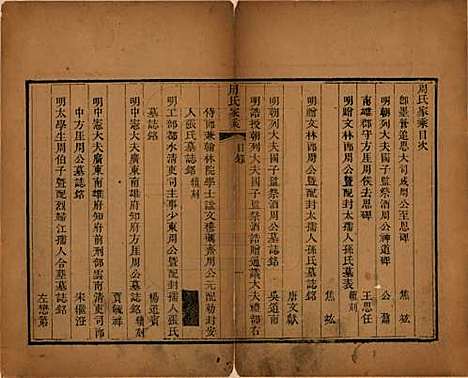 周氏家乘目次
郎墨林追思大司成周公至思碑 焦竑
明朝列大夫國子監祭酒周公神道碑 公鼐
南雄郡守方厓周侯去思碑 王思任
明贈文林郎周公暨配封太孺人孫氏墓表 續刻 焦竑
明贈文林郎周公暨配封太孺人孫氏墓誌銘 唐文獻
明朝列大夫國子監祭酒周公墓誌銘 吳道南
明誥授朝列大夫國子監祭酒誥贈通議大夫禮部右
周氏家乘
目錄
侍郎兼翰林院學士諡文穆礪齋周公元配勅封安
人張氏墓誌銘 續刻
明工部都水清吏司主事少東周公暨配封孺人張氏
墓誌銘 楊道賓
明中憲大夫廣東南雄府知府方厓周公墓誌銘 續刻
賈毓祥
明中憲大夫廣東南雄府知府前刑部雲南清吏司郎
中方厓周公墓誌銘 宋儀澄
明太學生周伯子暨配烈婦江孺人合葬墓誌銘
左懋第